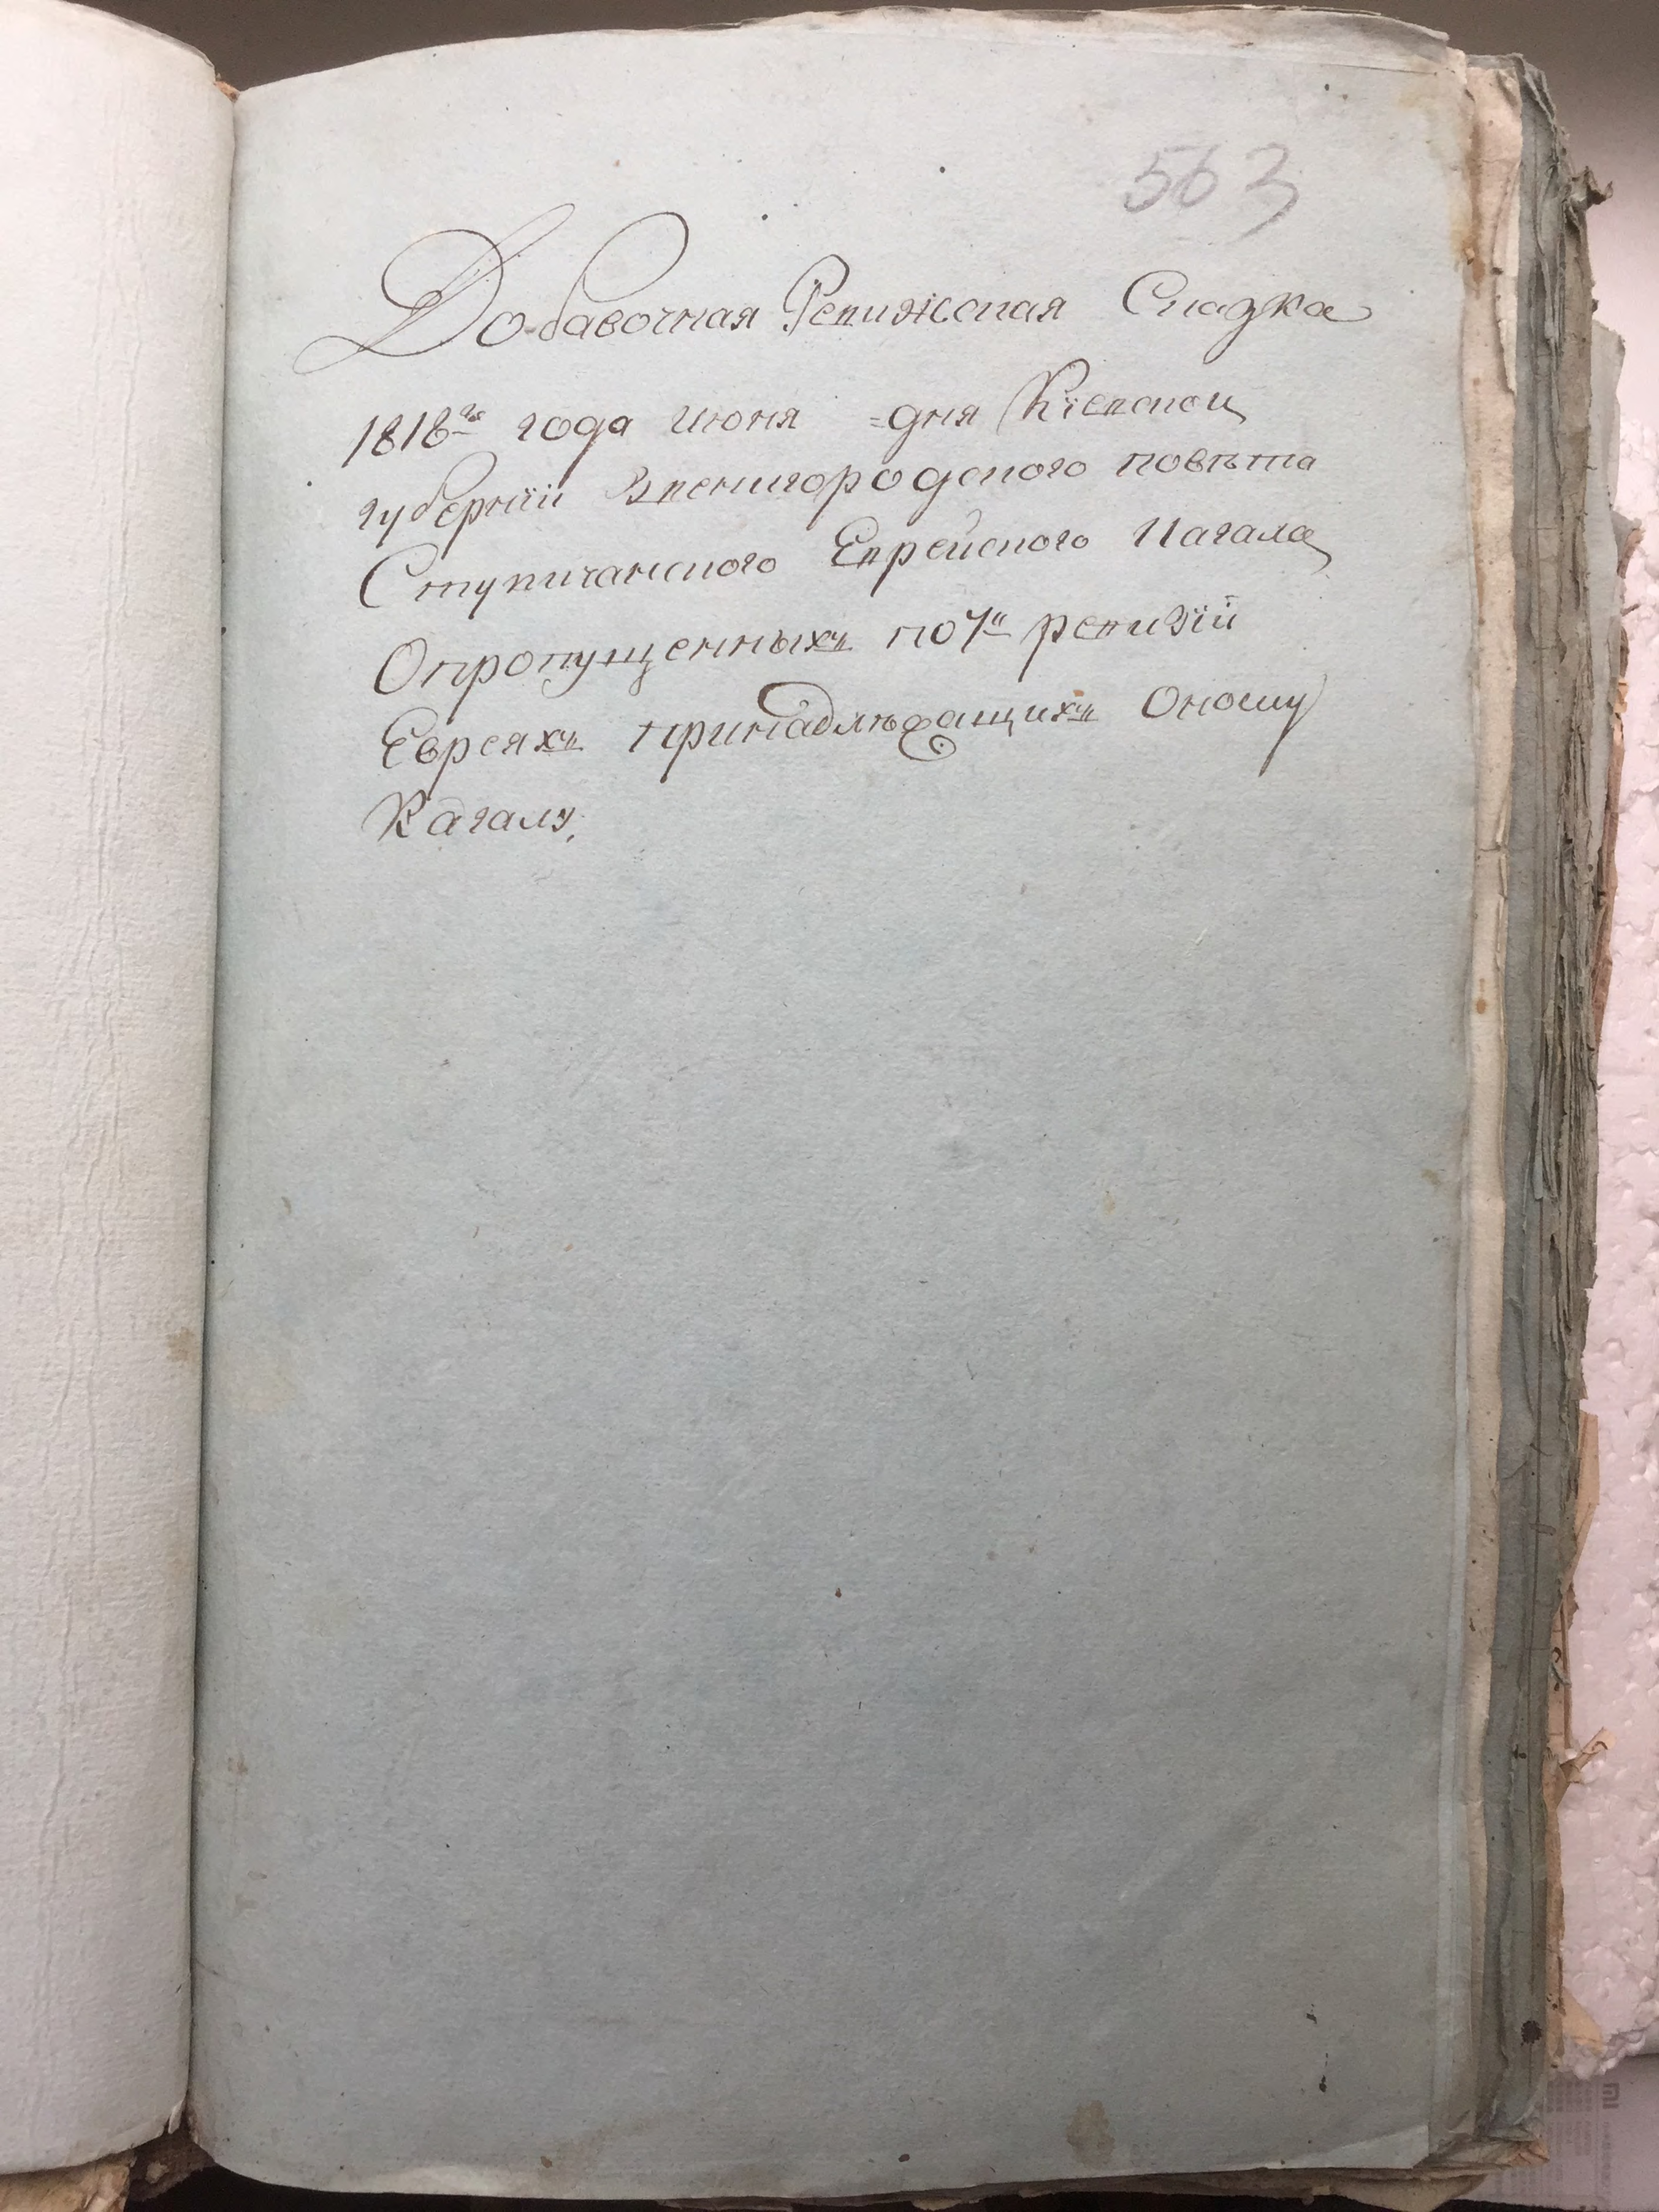 563
Добавочная Ревижская Сказка
1818го года июня =дня Кіевской
губерніи Звенигородского повѣта
Ступичанского Еврейского Кагала
Опропущенныхъ по 7й ревизіи
Евреяхъ принадлѣжащихъ Оному
Кагалу.